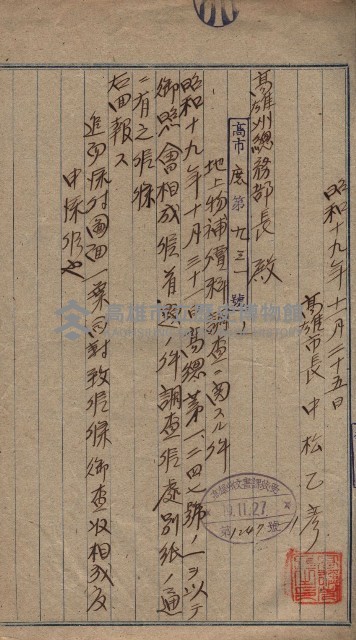 昭和十九年十一月二十五日
高雄市長 中松乙彦
高雄州總務部長 殿
高市庶第九三一號ノ
地上物補償料調査ニ関スル件
昭和十九年十月三十日高總第一、二四七號ノ一ヲ以テ
御照會相成候首題ノ件調査候處別紙ノ通
ニ有之候條
右回報ス
追而添付圖面一葉返付致候條御査收相成度
申添候也
高雄市立歷史博物館
19.11.27
第1247號